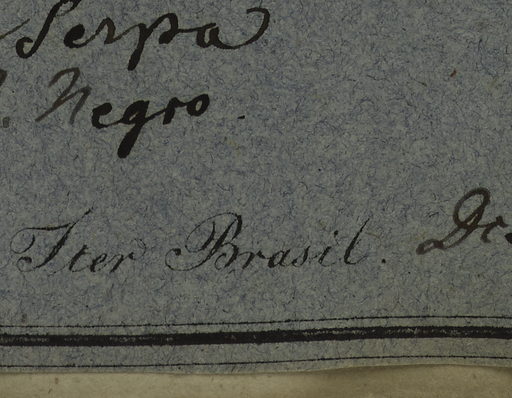 Serpa
Negro.
Iter Brasil.